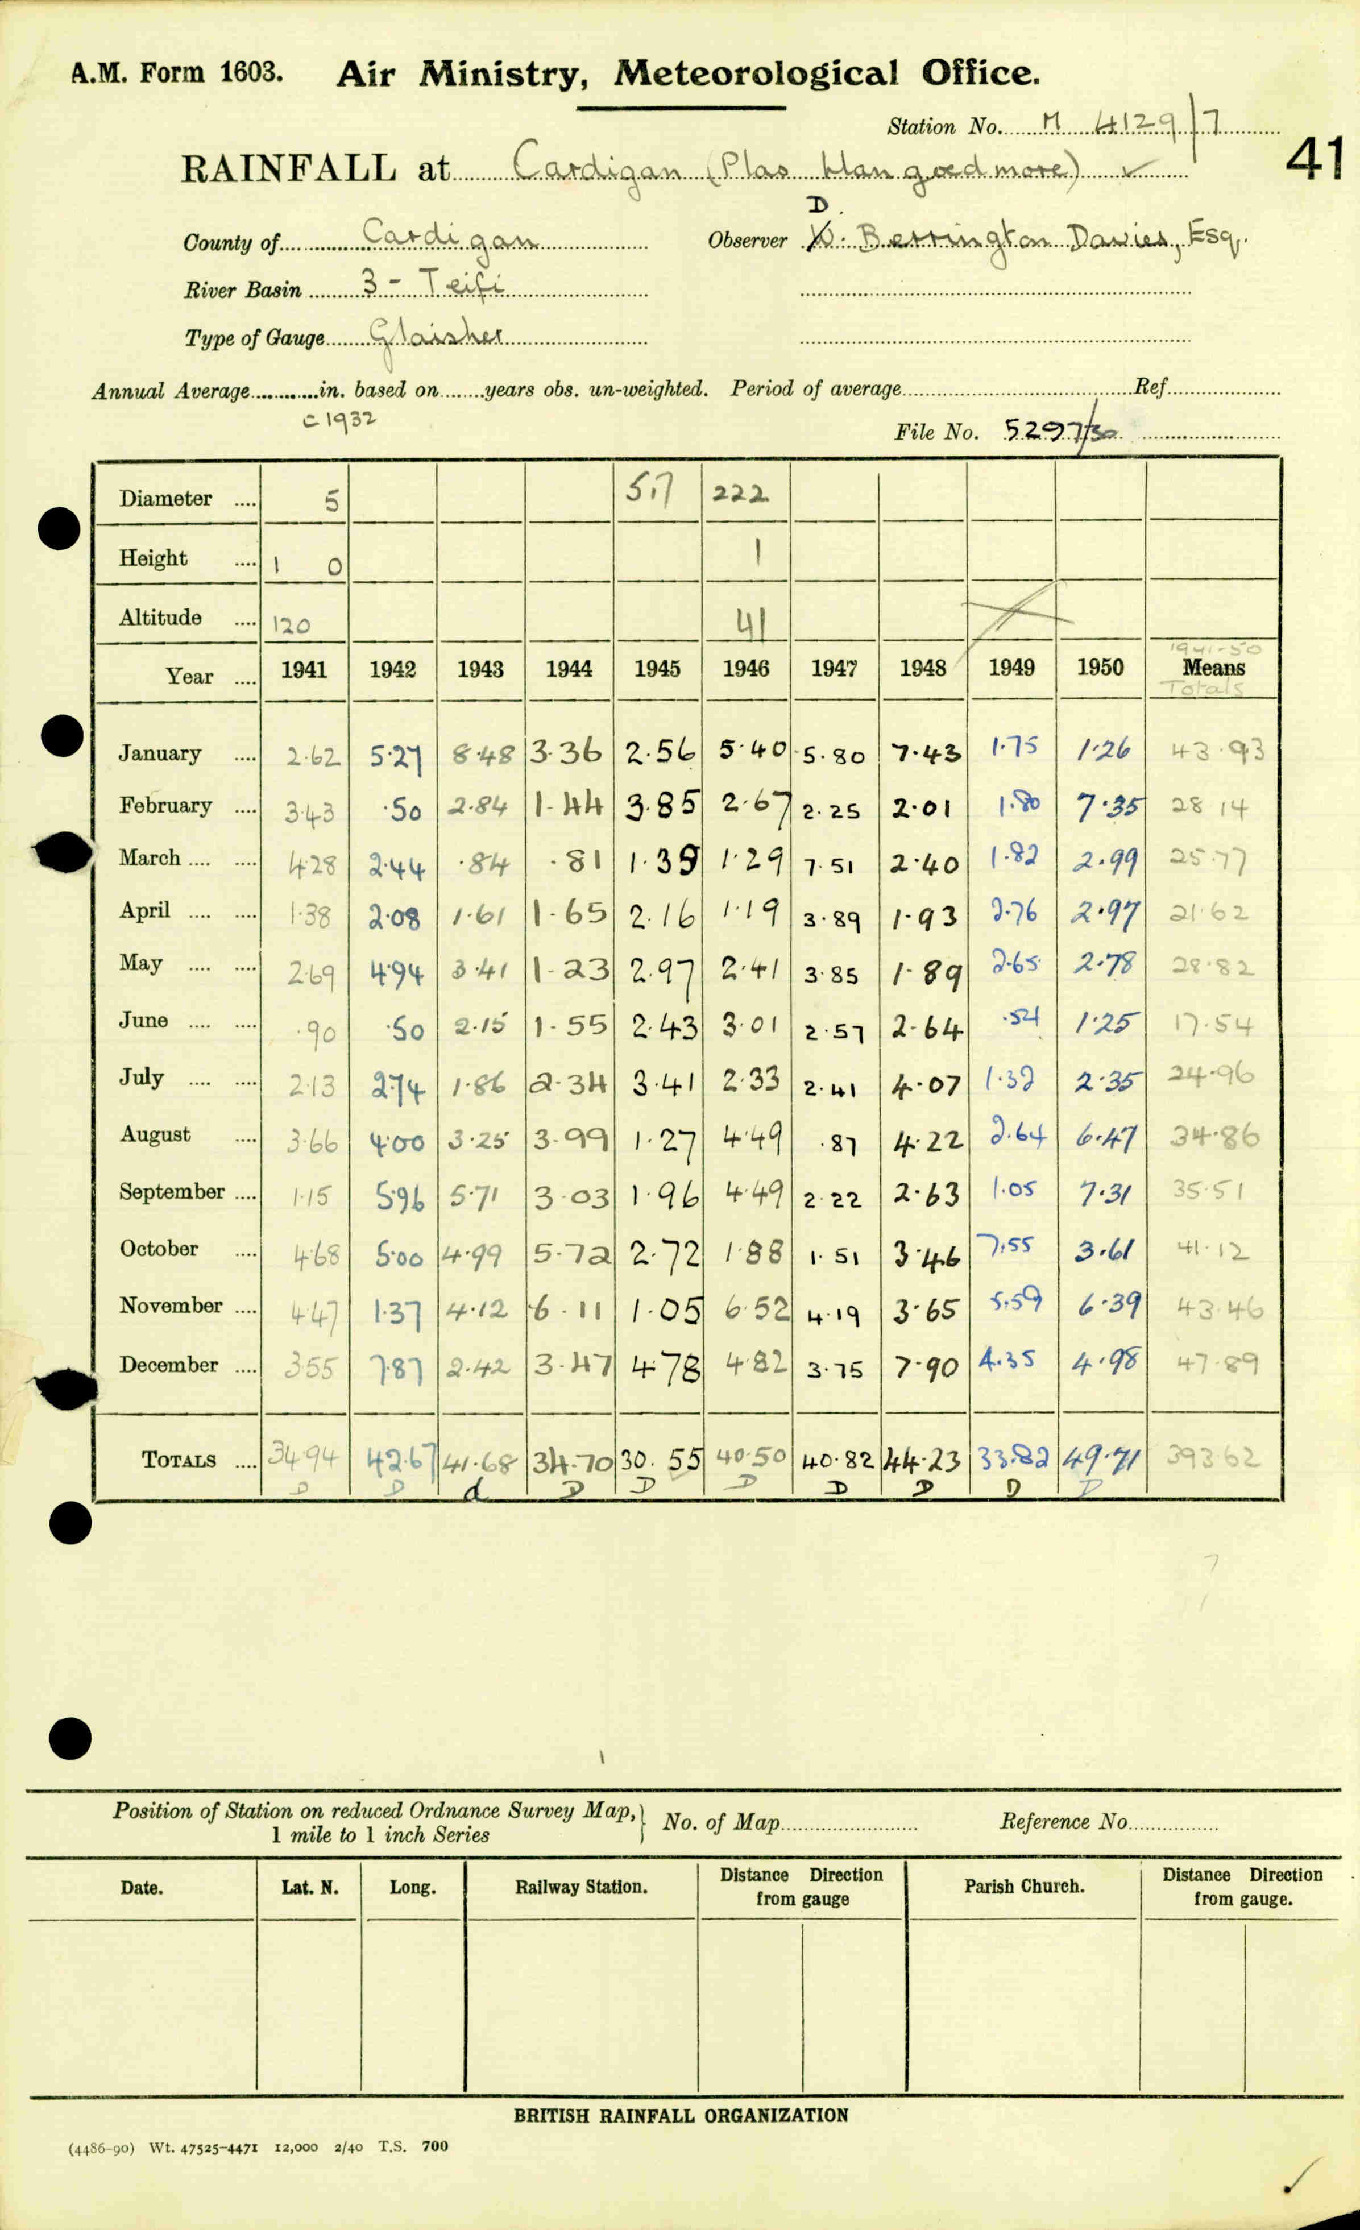 A.M. Form 1603. Air Ministry, Meteorological Office.
Station No. M 4129/7
41
RAINFALL at Cardigan (Plas Llangoedmore) ✓
D.
County of Cardigan Observer W. Berrington Davies, Esq.
River Basin 3 - Teifi
Type of Gauge Glaisher
Annual Average in. based on years obs. un-weighted. Period of average Ref.
c 1932
File No. 5297/30
Diameter 5 5.7 222
Height 1 0 1
Altitude 120 41
1941-50
Year 1941 1942 1943 1944 1945 1946 1947 1948 1949 1950 Means
Totals
January 2.62 5.27 8.48 3.36 2.56 5.40 5.80 7.43 1.75 1.26 43.93
February 3.43 .50 2.84 1.44 3.85 2.67 2.25 2.01 1.80 7.35 28 14
March 4.28 2.44 .84 .81 1.39 1.29 7.51 2.40 1.82 2.99 25.77
April 1.38 2.08 1.61 1.65 2.16 1.19 3.89 1.93 2.76 2.97 21.62
May 2.69 4.94 3.41 1.23 2.97 2.41 3.85 1.89 2.65 2.78 28.82
June .90 .50 2.15 1.55 2.43 3.01 2.57 2.64 .54 1.25 17.54
July 2.13 2.74 1.86 2.34 3.41 2.33 2.41 4.07 1.32 2.35 24.96
August 3.66 4.00 3.25 3.99 1.27 4.49 .87 4.22 2.64 6.47 34.86
September 1.15 5.96 5.71 3.03 1.96 4.49 2.22 2.63 1.05 7.31 35.51
October 4.68 5.00 4.99 5.72 2.72 1.88 1.51 3.46 7.55 3.61 41.12
November 4.47 1.37 4.12 6.11 1.05 6.52 4.19 3.65 5.59 6.39 43.46
December 3.55 7.87 2.42 3.47 4.78 4.82 3.75 7.90 4.35 4.98 47.89
TOTALS 34.94 42.67 41.68 34.70 30.55 40.50 40.82 44.23 33.82 49.71 393.62
D D d D D D D D D D
Position of Station on reduced Ordnance Survey Map, } No. of Map Reference No.
1 mile to 1 inch Series
Date. Lat. N. Long. Railway Station. Distance Direction from gauge Parish Church. Distance Direction from gauge.
BRITISH RAINFALL ORGANIZATION
(4486-90) Wt. 47525-4471 12,000 2/40 T.S. 700